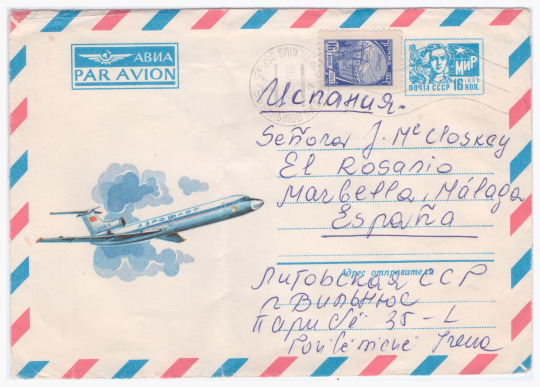 АВИА
PAR AVION
МИР
1966
ПОЧТА СССР 16 КОП.
Испания.
Señora J. McCloskey
El Rosario
Marbella, Málaga
España
АЭРОФЛОТ
Адрес отправителя
Литовская ССР
г. Вильнюс
35-1
Irena